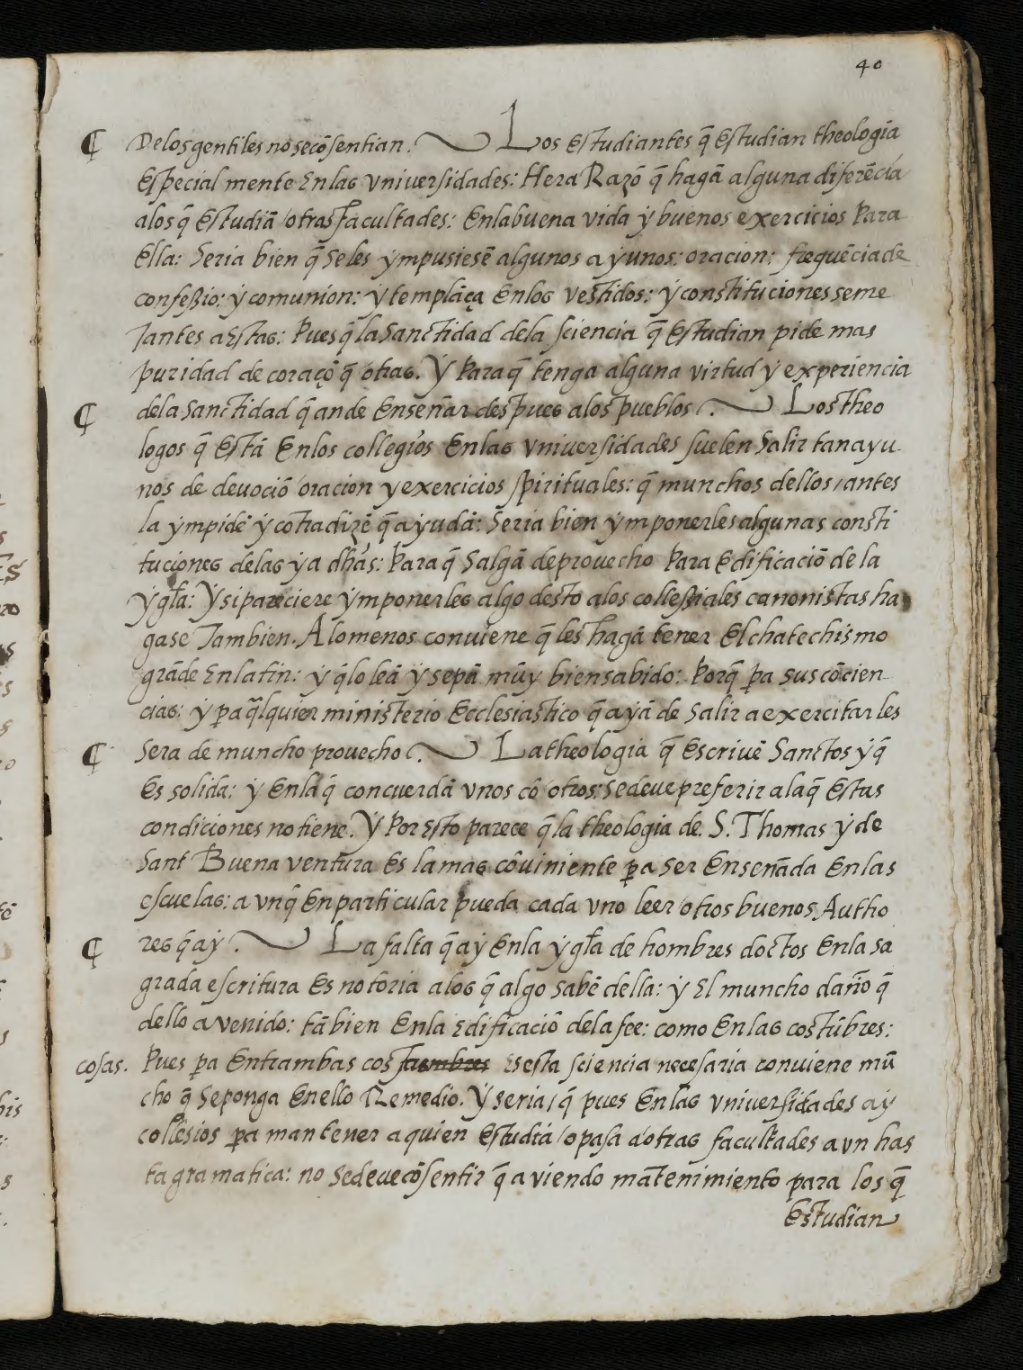 40
₵ Delos gentiles no se cõsentian. Los estudiantes q̃ estudian theologia
especial mente enlas vniversidades: Hera Razõ q̃ hagã alguna diferẽcia
alos q̃ estudiã / otras facultades: enla buena vida ÿ buenos exercicios para
ella: Seria bien q̃ seles ÿmpusiesẽ algunos aÿunos: oracion: freguẽcia de
confeßio: ÿ comunion: ÿ templãça enlos vestidos: ÿ constituciones seme
Jantes a estas: Pues q̃ la sanctidad dela sciencia q̃ estudian pide mas
puridad de coraçõ q̃ otras. Ÿ Para q̃ tenga alguna virtud ÿ experiencia
₵ dela sanctidad q̃ ande enseñar despues alos pueblos. Los theo
logos q̃ estã enlos collegios enlas vniversidades suelen salir tan ayu
nos de devociõ / oracion y exercicios spirituales: q̃ munchos dellos / antes
la ÿmpidẽ ÿ cõtradizẽ q̃ aÿudã: Seria bien ÿmponerles algunas consti
tuciones delas ÿa dhãs: Para q̃ salgã de provecho para edificaciõ de la
ÿgl̃a: Ÿ si pareciere ÿmponerles algo desto alos colleßiales canonistas ha
gase Tambien. Alomenos conviene q̃ les hagã tener el chatechismo
grãde en latin: ÿ q̃ lo leã ÿ sepã mūy bien sabido: Porq̃ p̱a sus cõcien
cias: ÿ p̱a q̃lquier ministerio ecclesiastico q̃ aÿã de salir a exercitar les
₵ sera de muncho provecho. La theologia q̃ escrivẽ sanctos ÿ q̃
es solida: ÿ enla q̃ concuerdã vnos cõ / otros: se deve preferir ala q̃ estas
condiciones no tiene. Ÿ Por esto parece q̃ la theologia de S. Thomas ÿ de
sant Buena ventura es la mas cõviniente p̱a ser enseñada enlas
escuelas: a vnq̃ en particular pueda cada vno leer / otros buenos Autho
₵ res q̃ aÿ. La falta q̃ aÿ enla ÿgl̃a de hombres doctos enla sa
grada escritura es notoria alos q̃ algo sabẽ della: ÿ el muncho daño q̃
dello a venido: tãbien enla edificaciõ dela fee: como enlas costũbres:
cosas. Pues p̱a entrambas cos tumbres es esta sciencia necesaria conviene mũ
cho q̃ se ponga enello Remedio. Ÿ seria / q̃ pues enlas vniversidades aÿ
collesios p̱a mantener a quien estudiã / o pasa a otras facultades a vn has
ta gramatica: no se deve cõsentir q̃ a viendo mãtenimiento para los q̃
estudian